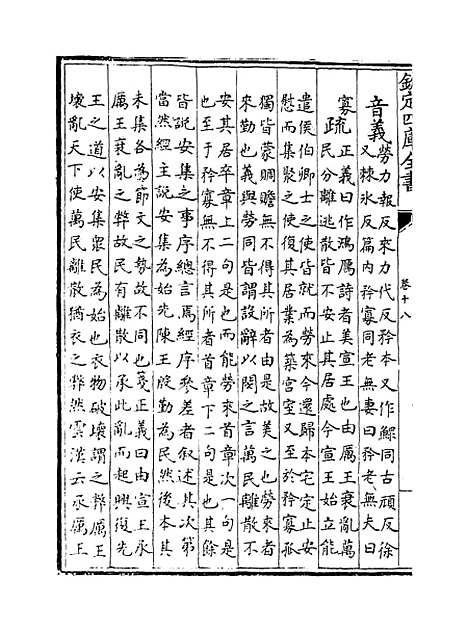 欽定四庫全書
卷十八
音義勞力報反來力代反矜本又作鰥同古頑反徐
又棘氷反篇内矜寡同老無妻曰矜老無夫曰
寡疏正義曰作鴻鴈詩者美宣王也由厲王衰亂萬
民分離逃散皆不安止其居處今宣王始立能
遣侯伯卿士之使皆就而勞來今還歸本宅定止安
慰而集聚之使復其居業為築宫室又至於矜寡孤
獨皆蒙賙贍無不得其所者由是故美之也勞來者
來勤也義與勞同皆謂設辭以閔之言萬民離散不
安其居卒章上二句是也而能勞來首章次一句是
也至于矜寡無不得其所者首章下二句是也其餘
皆說安集之事序總言焉經序參差者敘述其次第
當然經主說安集為始先陳王殷勤為民然後本其
未集各為節文之勢故不同也箋正義曰由宣王承
厲王衰亂之弊故民有離散以承此亂而起興復先
王之道以安集衆民為始也衣物破壞謂之弊厲王
壞亂天下使萬民離散猶衣之弊然雲漢云承厲王